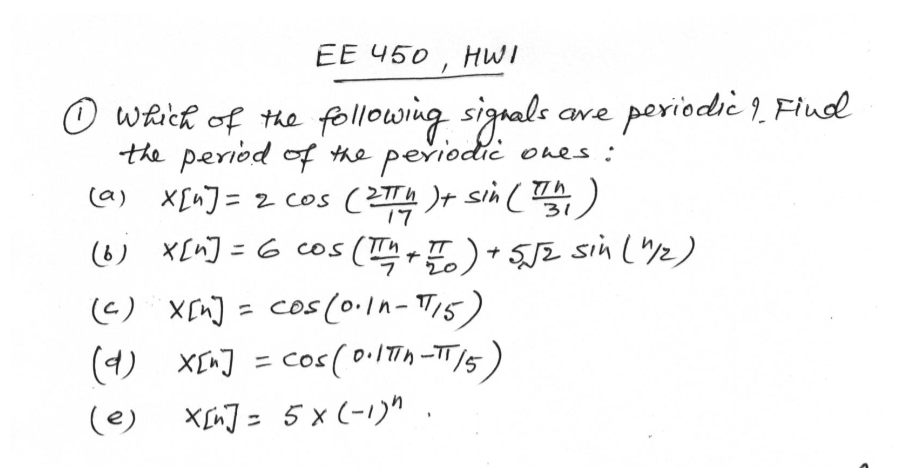 EE 450, HW1
① Which of the following signals are periodic? Find
the period of the periodic ones:
(a) x[n] = 2 cos (2πn/17) + sin (πn/31)
(b) x[n] = 6 cos (πn/7 + π/20) + 5√2 sin (n/2)
(c) x[n] = cos(0.1n - π/5)
(d) x[n] = cos(0.1πn - π/5)
(e) x[n] = 5 x (-1)ⁿ .